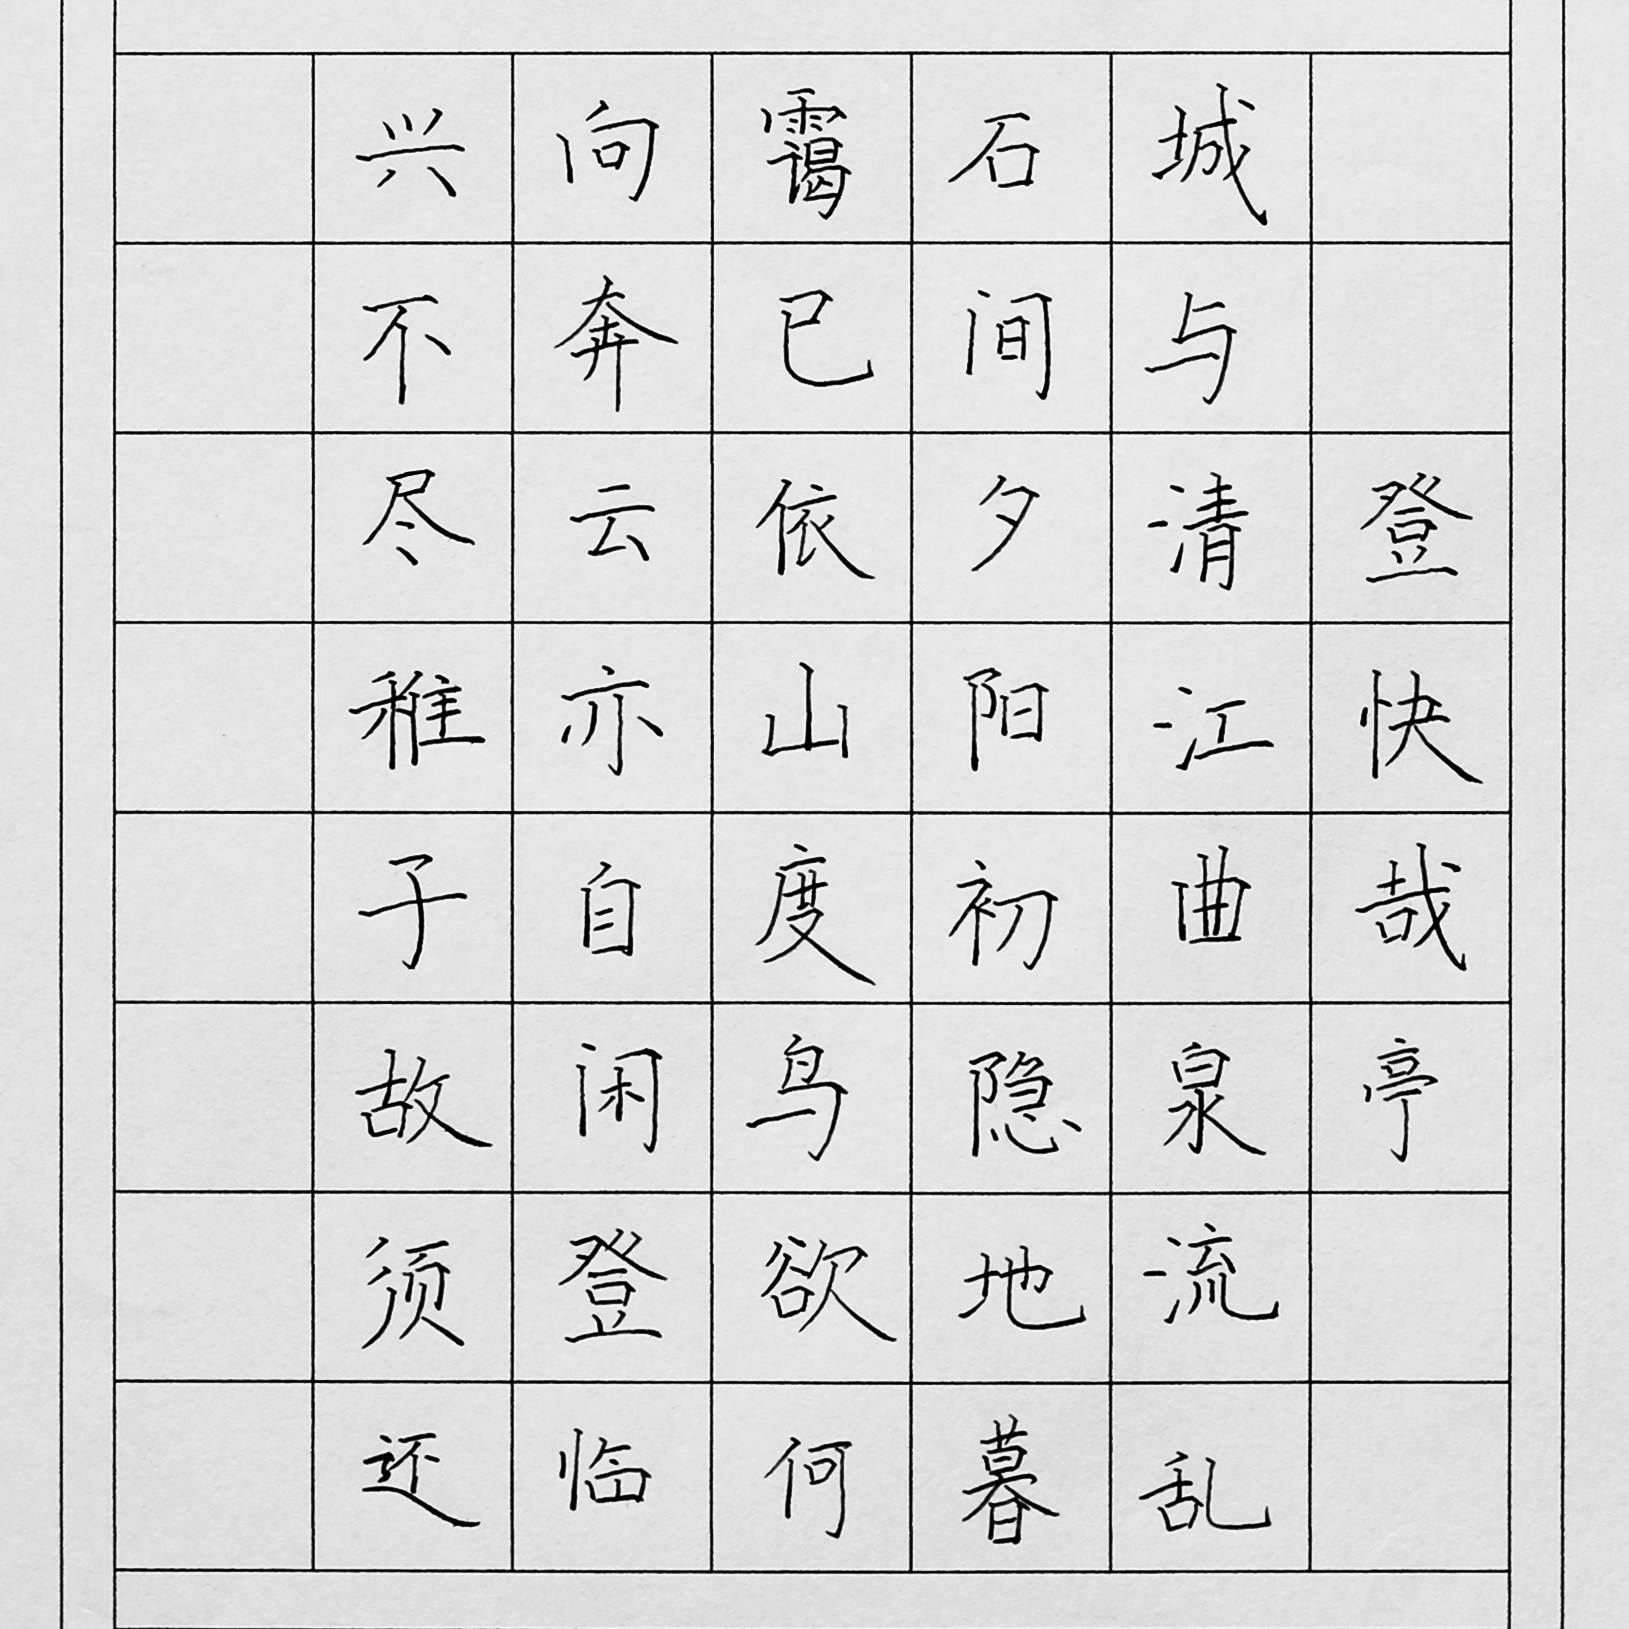 登快哉亭
城与清江曲泉流乱
石间夕阳初隐地暮
霭已依山度鸟欲何
向奔云亦自闲登临
兴不尽稚子故须还